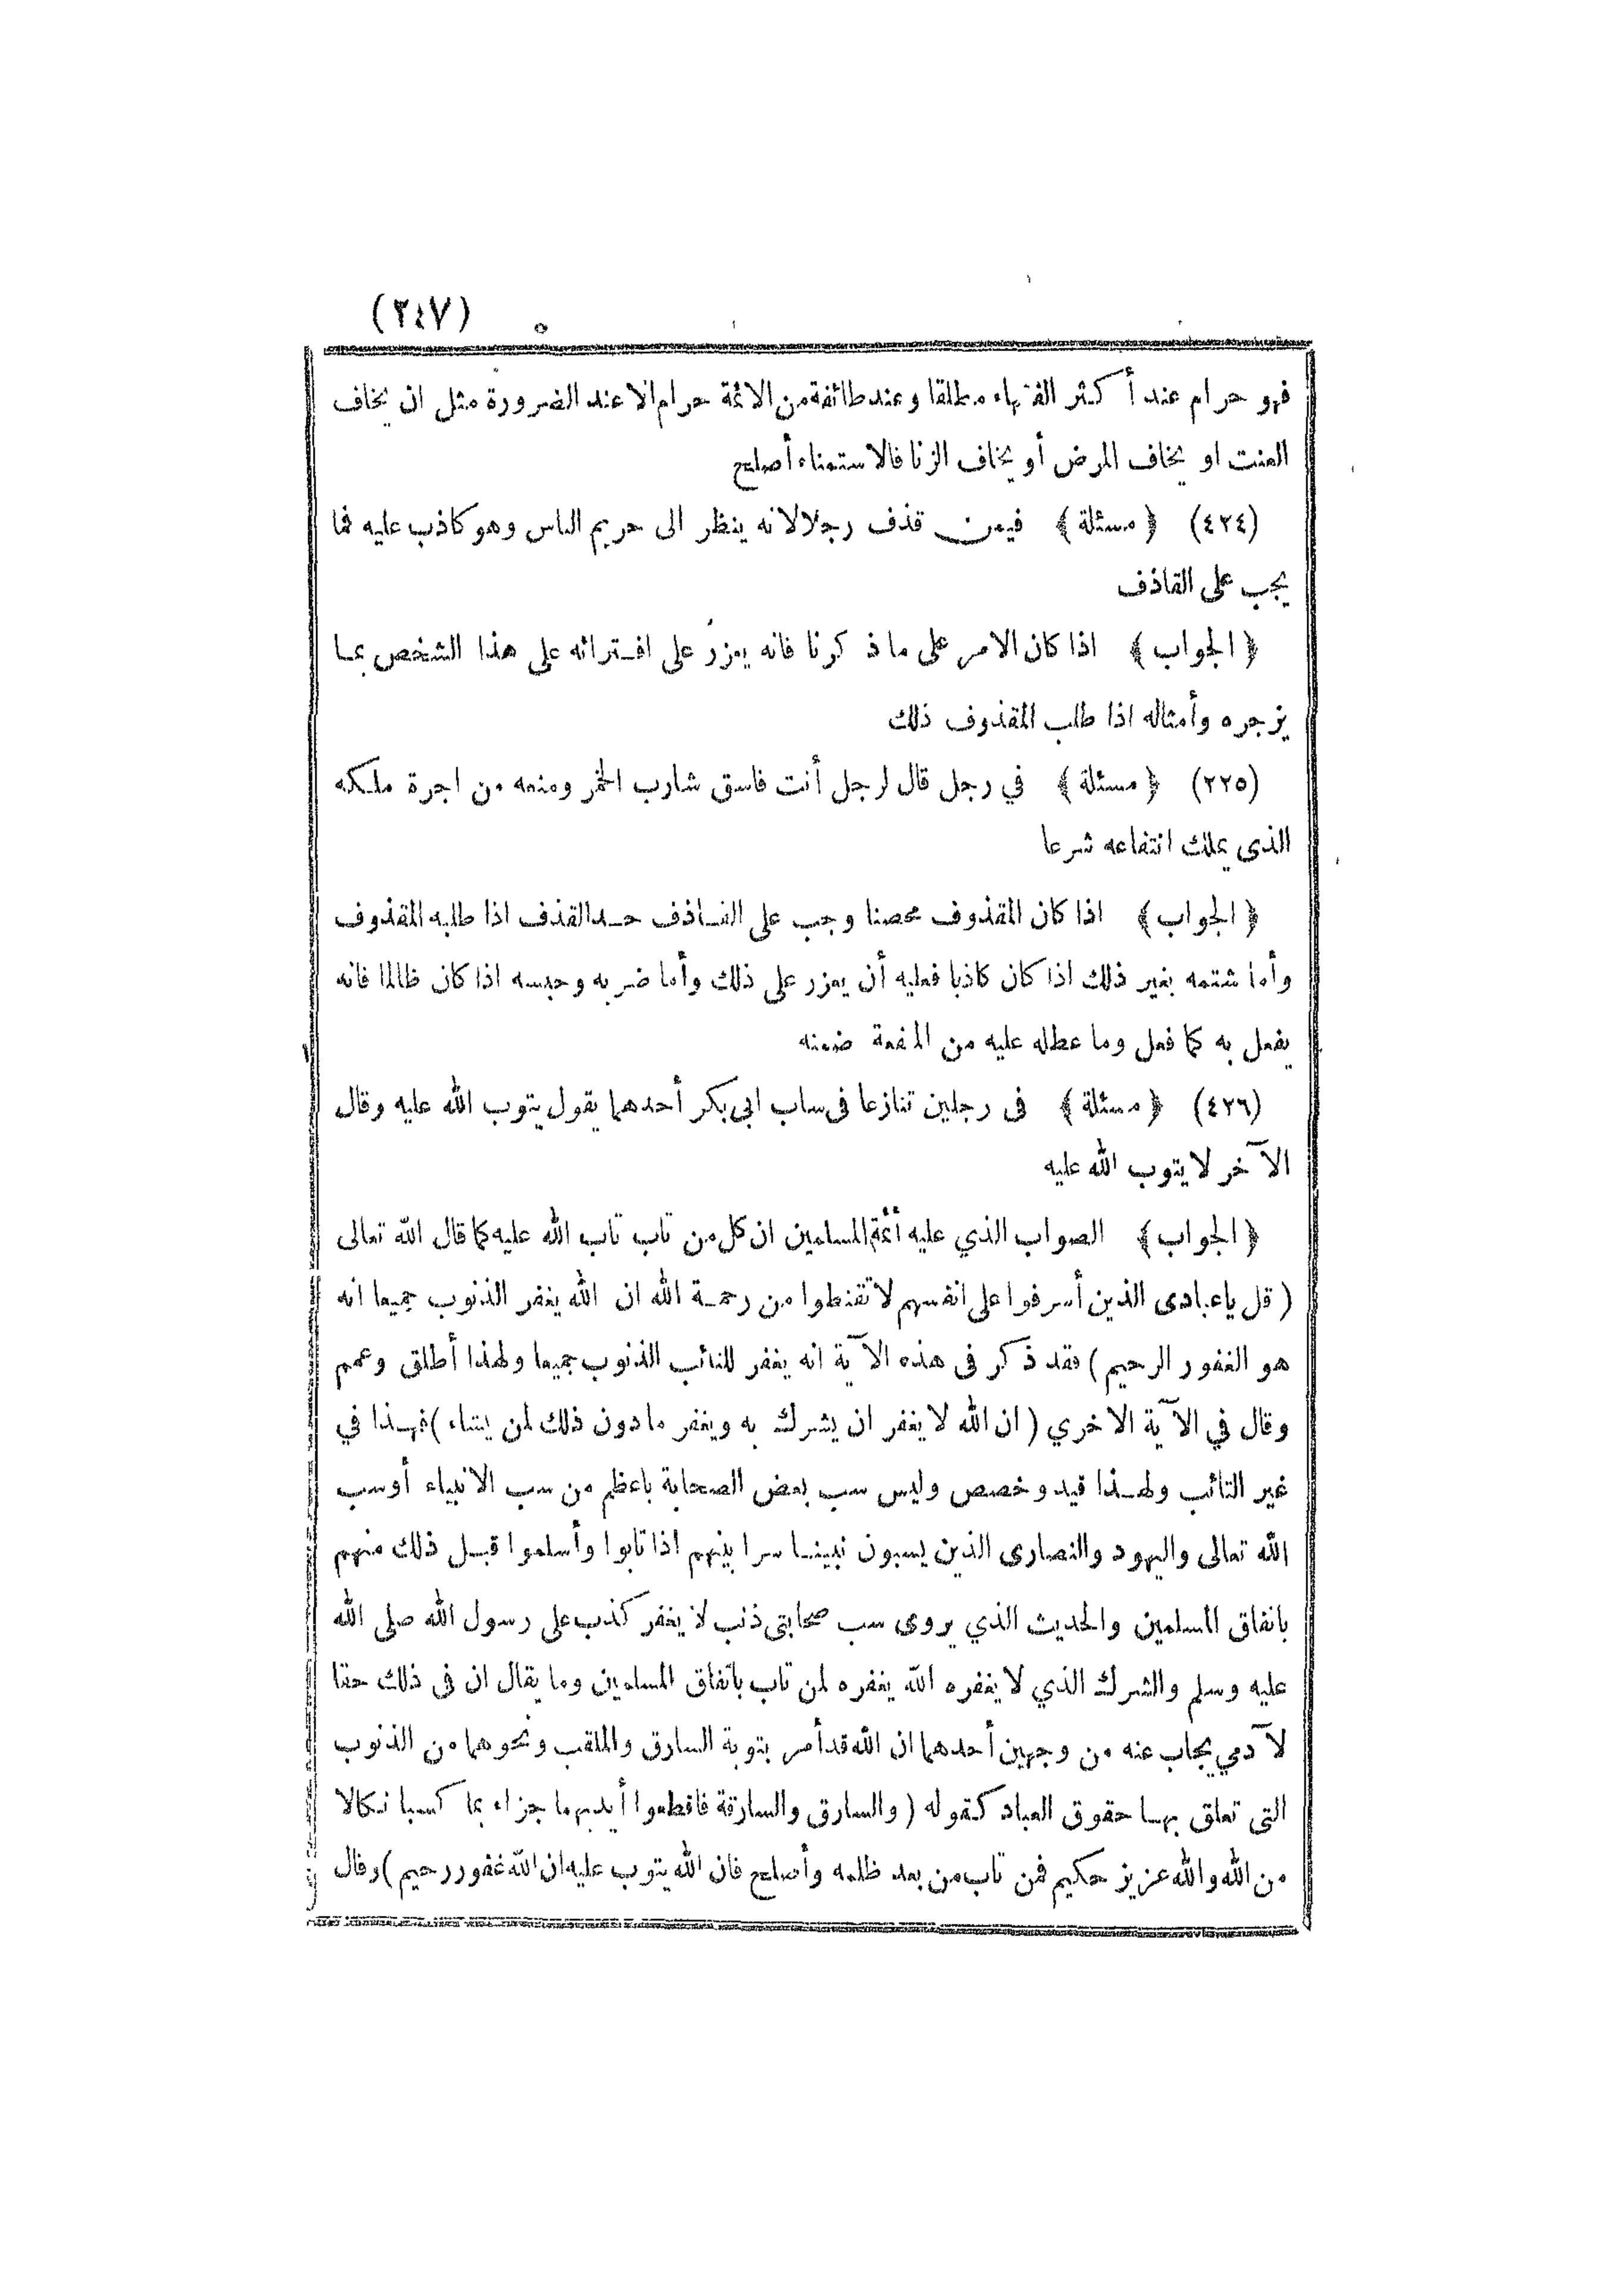 (٢٤٧)
فهو حرام عند أكثر الفقهاء مطلقا وعند طائفة من الائمة حرام الا عند الضرورة مثل ان يخاف
العنت او يخاف المرض أو يخاف الزنا فالاستمناء أصلح
(٤٢٤) ﴿ مسئلة ﴾ فيمن قذف رجلا لانه ينظر الى حريم الناس وهو كاذب عليه فما
يجب على القاذف
﴿ الجواب ﴾ اذا كان الامر على ما ذكرنا فانه يعزر على افترائه على هذا الشخص بما
يزجره وأمثاله اذا طلب المقذوف ذلك
(٢٢٥) ﴿ مسئلة ﴾ في رجل قال لرجل أنت فاسق شارب الخمر ومنعه من اجرة ملكه
الذى يملك انتفاعه شرعا
﴿ الجواب ﴾ اذا كان المقذوف محصنا وجب على القاذف حد القذف اذا طلبه المقذوف
وأما شتمه بغير ذلك اذا كان كاذبا فعليه أن يعزر على ذلك وأما ضربه وحبسه اذا كان ظالما فانه
يفعل به كما فعل وما عطله عليه من المنفعة ضمنه
(٤٢٦) ﴿ مسئلة ﴾ فى رجلين تنازعا فى ساب ابى بكر أحدهما يقول يتوب الله عليه وقال
الآخر لا يتوب الله عليه
﴿ الجواب ﴾ الصواب الذي عليه أئمة المسلمين ان كل من تاب تاب الله عليه كما قال الله تعالى
( قل ياعبادى الذين أسرفوا على انفسهم لا تقنطوا من رحمة الله ان الله يغفر الذنوب جميعا انه
هو الغفور الرحيم ) فقد ذكر فى هذه الآية انه يغفر للتائب الذنوب جميعا ولهذا أطلق وعمم
وقال في الآية الاخري ( ان الله لا يغفر ان يشرك به ويغفر ما دون ذلك لمن يشاء ) فهذا في
غير التائب ولهذا قيد وخصص وليس سب بعض الصحابة باعظم من سب الانبياء أو سب
الله تعالى واليهود والنصارى الذين يسبون نبينا سرا بينهم اذا تابوا وأسلموا قبل ذلك منهم
باتفاق المسلمين والحديث الذي يروى سب صحابتى ذنب لا يغفر كذب على رسول الله صلى الله
عليه وسلم والشرك الذي لا يغفره الله يغفره لمن تاب باتفاق المسلمين وما يقال ان فى ذلك حقا
لآدمي يجاب عنه من وجهين أحدهما ان الله قد أمر بتوبة السارق والملقب ونحوهما من الذنوب
التى تعلق بها حقوق العباد كقوله ( والسارق والسارقة فاقطعوا أيديهما جزاء بما كسبا نكالا
من الله والله عزيز حكيم فمن تاب من بعد ظلمه وأصلح فان الله يتوب عليه ان الله غفور رحيم ) وقال